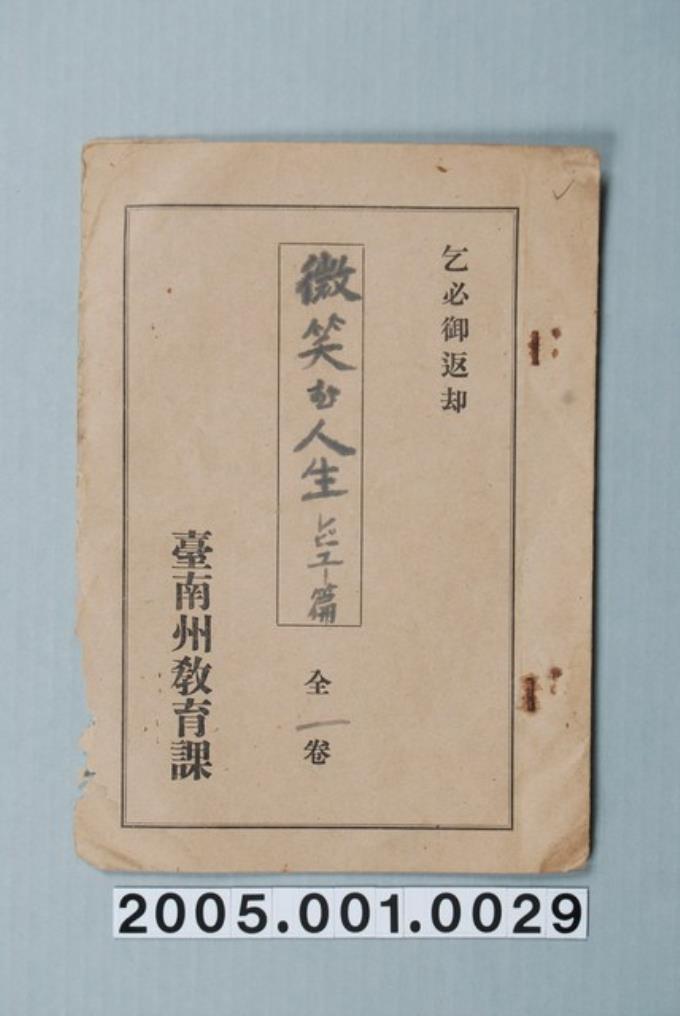 乞必御返却
微笑む人生 篇
全一卷
臺南州教育課
2005.001.0029